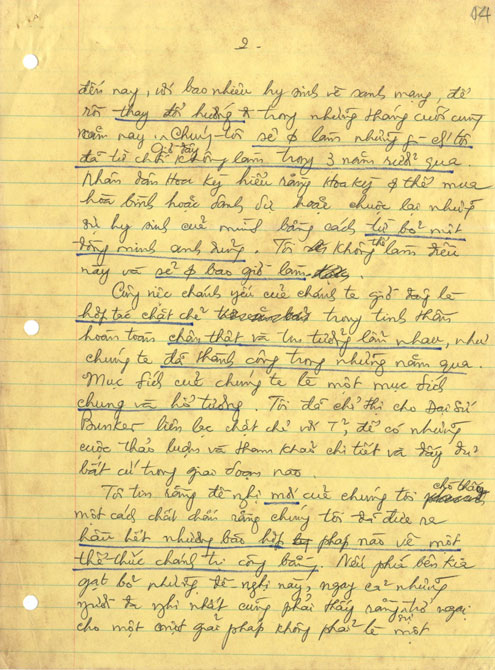 104
2-
đến nay, với bao nhiêu hy sinh về sanh mạng, để
rồi thay đổi hướng đi trong những tháng cuối cùng
năm nay. Giờ đây Chúng tôi sẽ ϕ làm những gì ch/tôi
đã từ chối không làm trong 3 năm rưỡi qua.
Nhân dân Hoa Kỳ hiểu rằng Hoa kỳ ϕ thể mua
hòa bình hoặc danh dự hoặc chuộc lại những
sự hy sinh của mình bằng cách từ bỏ một
đồng minh anh dũng. Tôi không thể làm điều
này và sẽ ϕ bao giờ làm.
Công việc chánh yếu của chúng ta giờ đây là
hợp tác chặt chẽ trong tinh thần
hoàn toàn chân thật và tin tưởng lẫn nhau, như
chúng ta đã thành công trong những năm qua.
Mục đích của chúng ta là một mục đích
chung và hỗ tương. Tôi đã chỉ thị cho Đại Sứ
Bunker liên lạc chặt chẽ với TT, để có những
cuộc thảo luận và tham khảo chi tiết và đầy đủ
bất cứ trong giai đoạn nào.
Tôi tin rằng đề nghị mới của chúng tôi cho thấy
một cách chắc chắn rằng chúng tôi đã đưa ra
hầu hết nhượng bộ hợp pháp nào về một
thể thức chánh trị công bằng. Nếu phía bên kia
gạt bỏ những đề-nghị này, ngay cả những
người đa nghi nhất cũng phải thấy rằng trở ngại
cho một giải pháp không phải là một